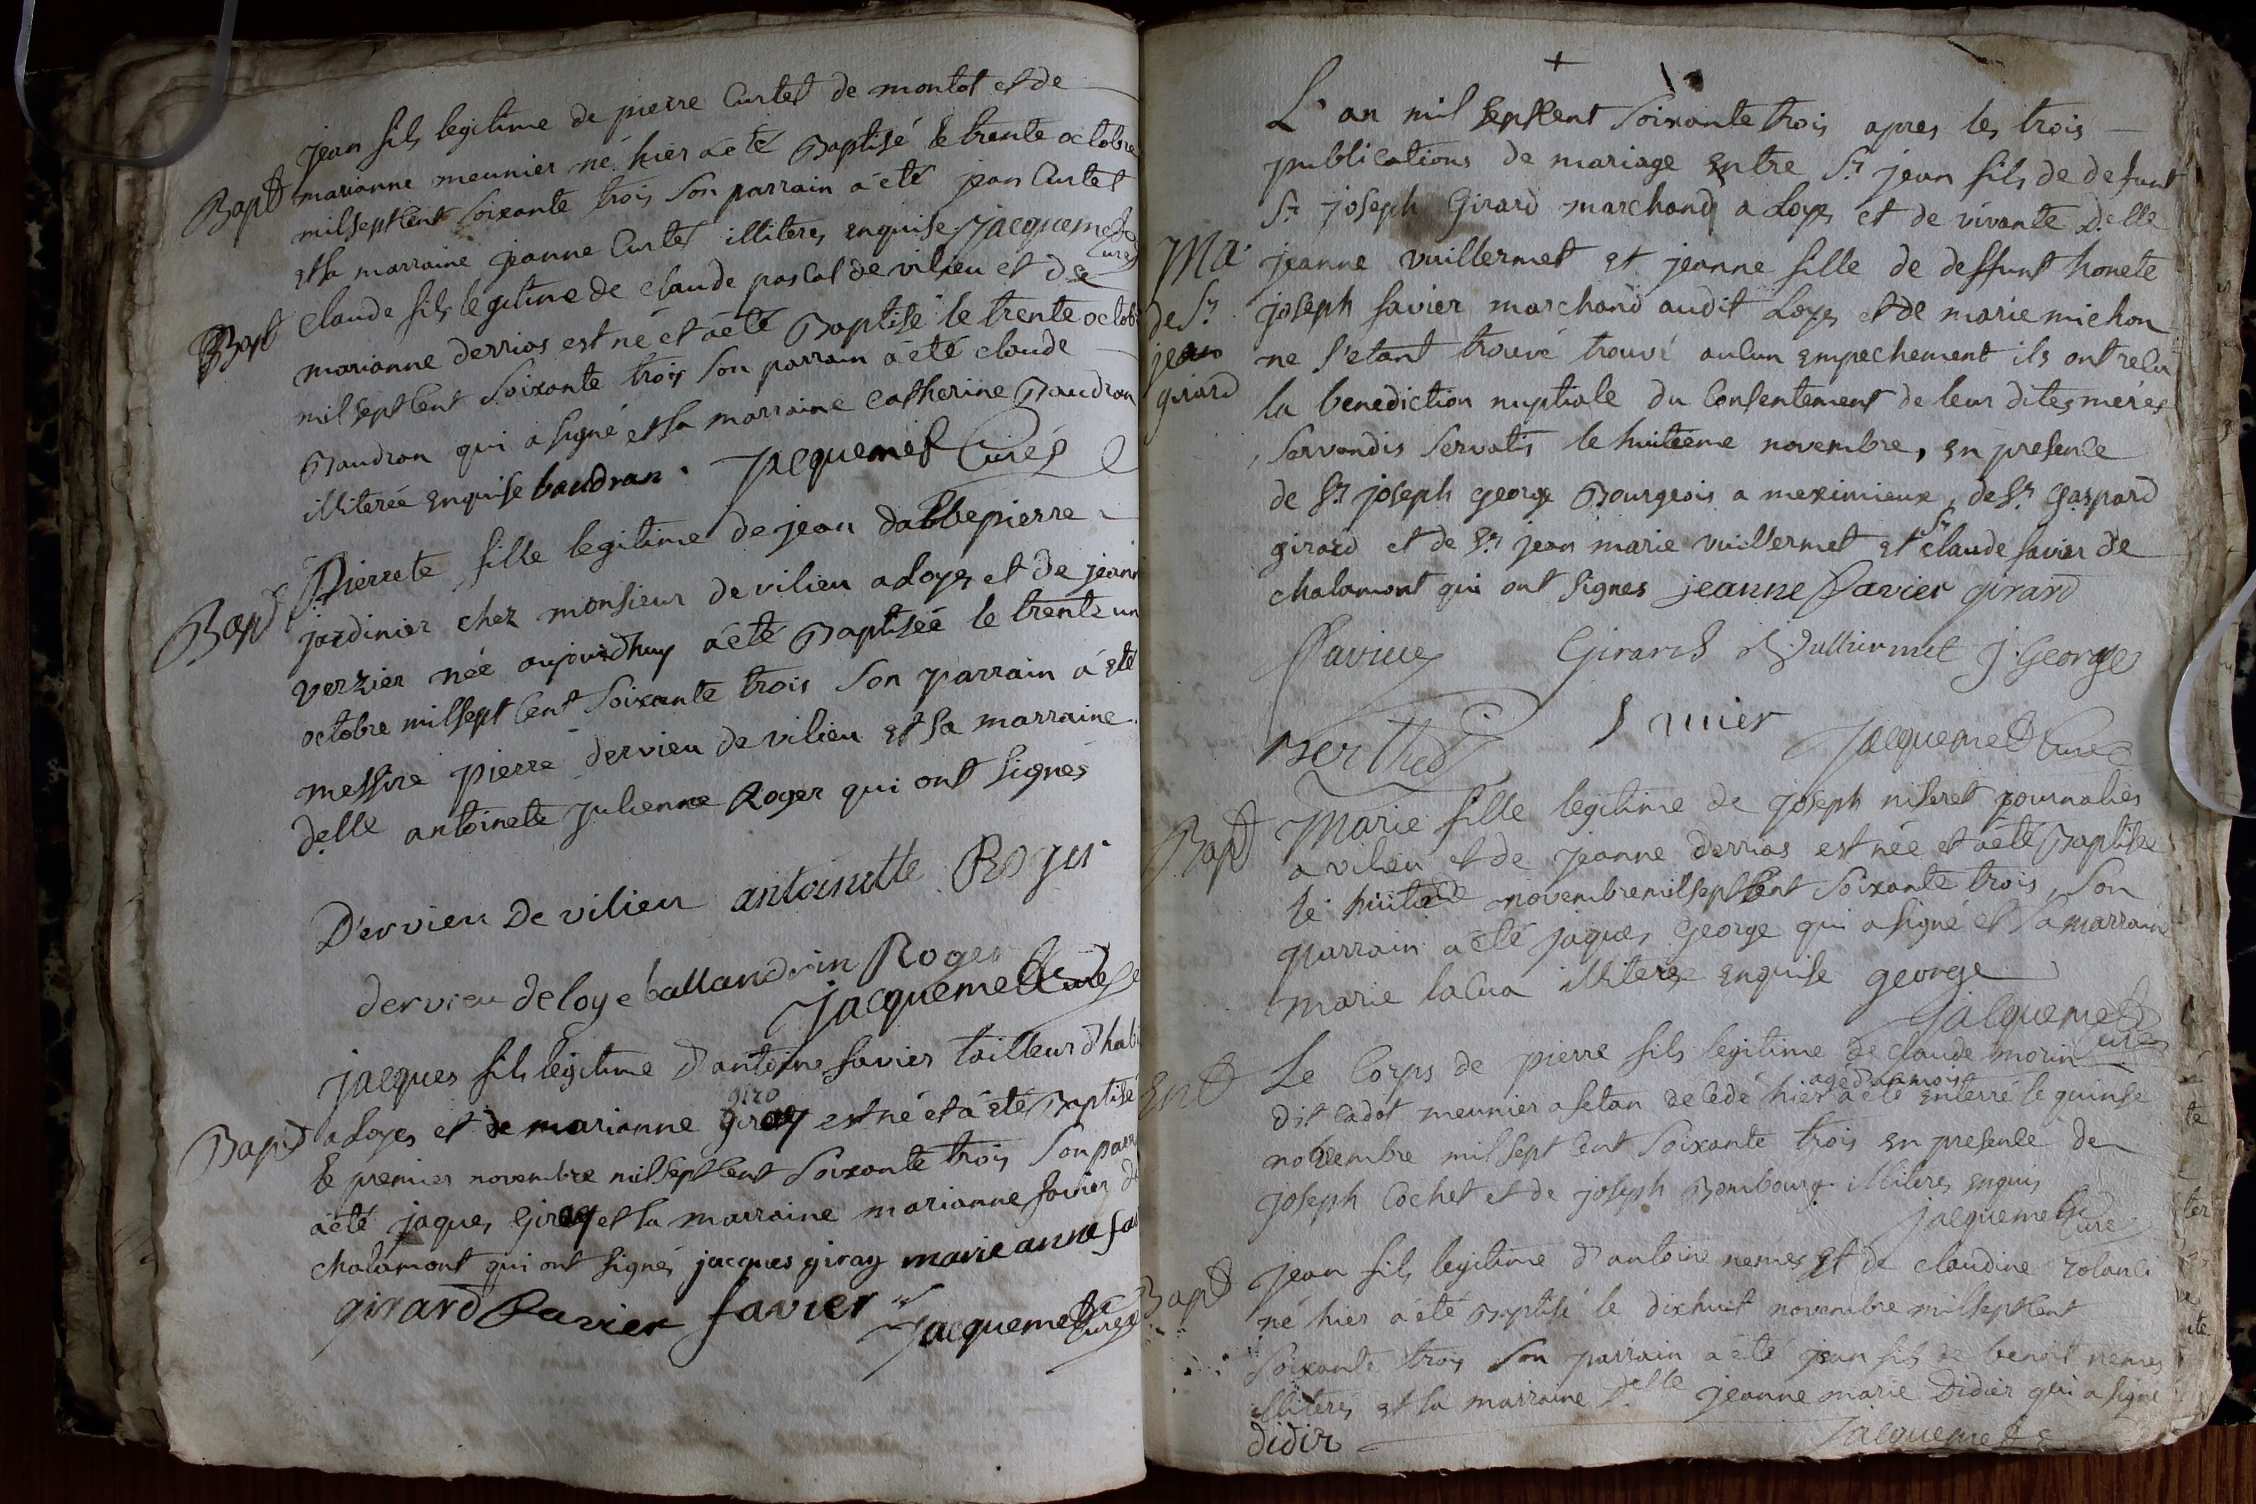 jean fils legitime de pierre Curtet de montot et de
Bapt marianne meunier né hier a été Baptisé le trente octobre
mil sept Cent soixante trois son parrain a été jean Curtet
et sa marraine jeanne Curtet illiteres enquise jacquemet
Curé
Bapt Claude fils legitime de claude pascal de vilieu et de
marianne derrias est né et a été Baptisé le trente octob
mil sept Cent soixante trois son parrain a été claude
Baudran qui a signé et sa marraine Catherine Baudran
illiterée enquise baudran. jacquemet Curé
Pierrete fille legitime de jean dabbepierre
Bapt jardinier chez monsieur de vilieu a Loyes et de jeann
verzier née aujourd'huy a été Baptisée le trente un
octobre mil sept Cent soixante trois son parrain a été
messire pierre dervieu de vilieu et sa marraine
delle antoinete julienne Roger qui ont signés
Dervieu De vilieu antoinette Roger
dervieu deloye ballandrin Roger
jacquemet Curé
jacques fils legitime d'antoine favier tailleur d'habi
giro
Bapt a Loyes et de marianne giray est né et a été Baptisé
le premier novembre mil sept Cent soixante trois son parr
a été jaques giray et sa marraine marianne favier de
chalamont qui ont signés jacques giray marie anne fa
girard favier favier jacquemet
Curé
+
L'an mil sept Cent soixante trois apres les trois
publications de mariage entre Sr jean fils de defunt
Sr joseph Girard marchand a Loyes et de vivante delle
Ma. jeanne vuillermet et jeanne fille de deffunt honete
de Sr joseph favier marchand audit Loyes et de marie michon
jean ne s'etant trouvé trouvé aucun empechement ils ont recu
girard la benediction nuptiale du Consentement de leur dites meres
servandis servatis le huitieme novembre, en presence
de Sr joseph george Bourgeois a meximieux, de Sr gaspard
Sr
girard et de Sr jean marie vuillermet et claude favier de
chalamont qui ont signes jeanne favier girard
favier Girard Vulliermet J. George
jacquemet Curé
Bapt Marie fille legitime de joseph niseret journalier
a vilieu et de jeanne derrias est née et a été Baptisée
le huitieme novembre mil sept Cent soixante trois, son
parrain a été jaques george qui a signé et sa marraine
marie lacua illiteree enquise george
jacquemet
Curé
Ent Le Corps de pierre fils legitime de claude morin
agé d'un mois
dit Cadot meunier a setan decedé hier a été enterré le quinse
novembre mil sept Cent soixante trois en presence de
joseph Cochet et de joseph Bombourg illiteres enquis
jacquemet
Curé
Bapt jean fils legitime d'antoine nemes et de claudine rolandi
né hier a été Baptisé le dixhuit novembre mil sept Cent
soixante trois son parrain a été jean fils de benoit nemes
illiteré et sa marraine delle jeanne marie Didier qui a signé
didir jacquemet